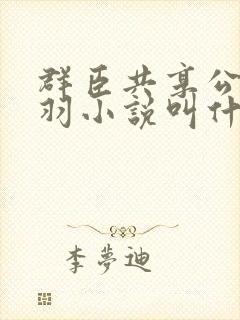 群臣共享公
羽小說叫什
李夢迪